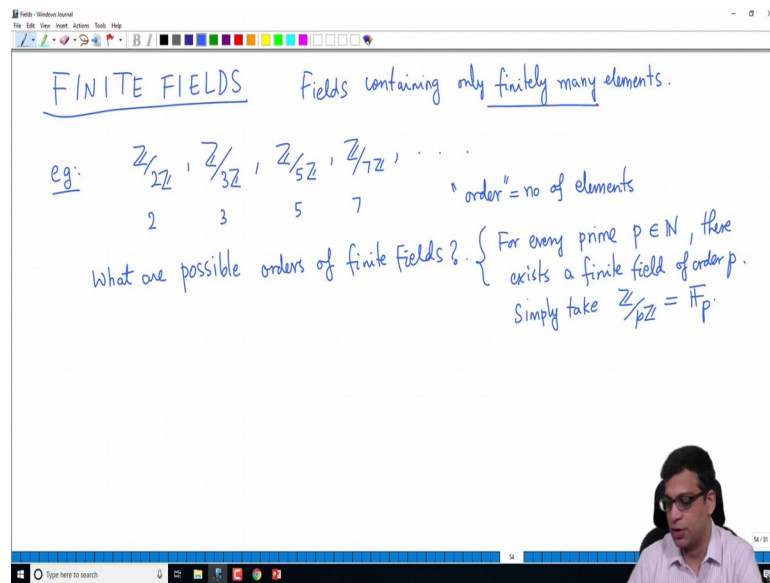 Fields - Windows Journal
File Edit View Insert Actions Tools Help
FINITE FIELDS Fields containing only finitely many elements.
eg: ℤ/2ℤ, ℤ/3ℤ, ℤ/5ℤ, ℤ/7ℤ, . . .
2 3 5 7
"order" = no of elements
What are possible orders of finite Fields?
{ For every prime p ∈ ℕ, there
exists a finite field of order p.
Simply take ℤ/pℤ = 𝔽p.
54
54 / 81
Type here to search